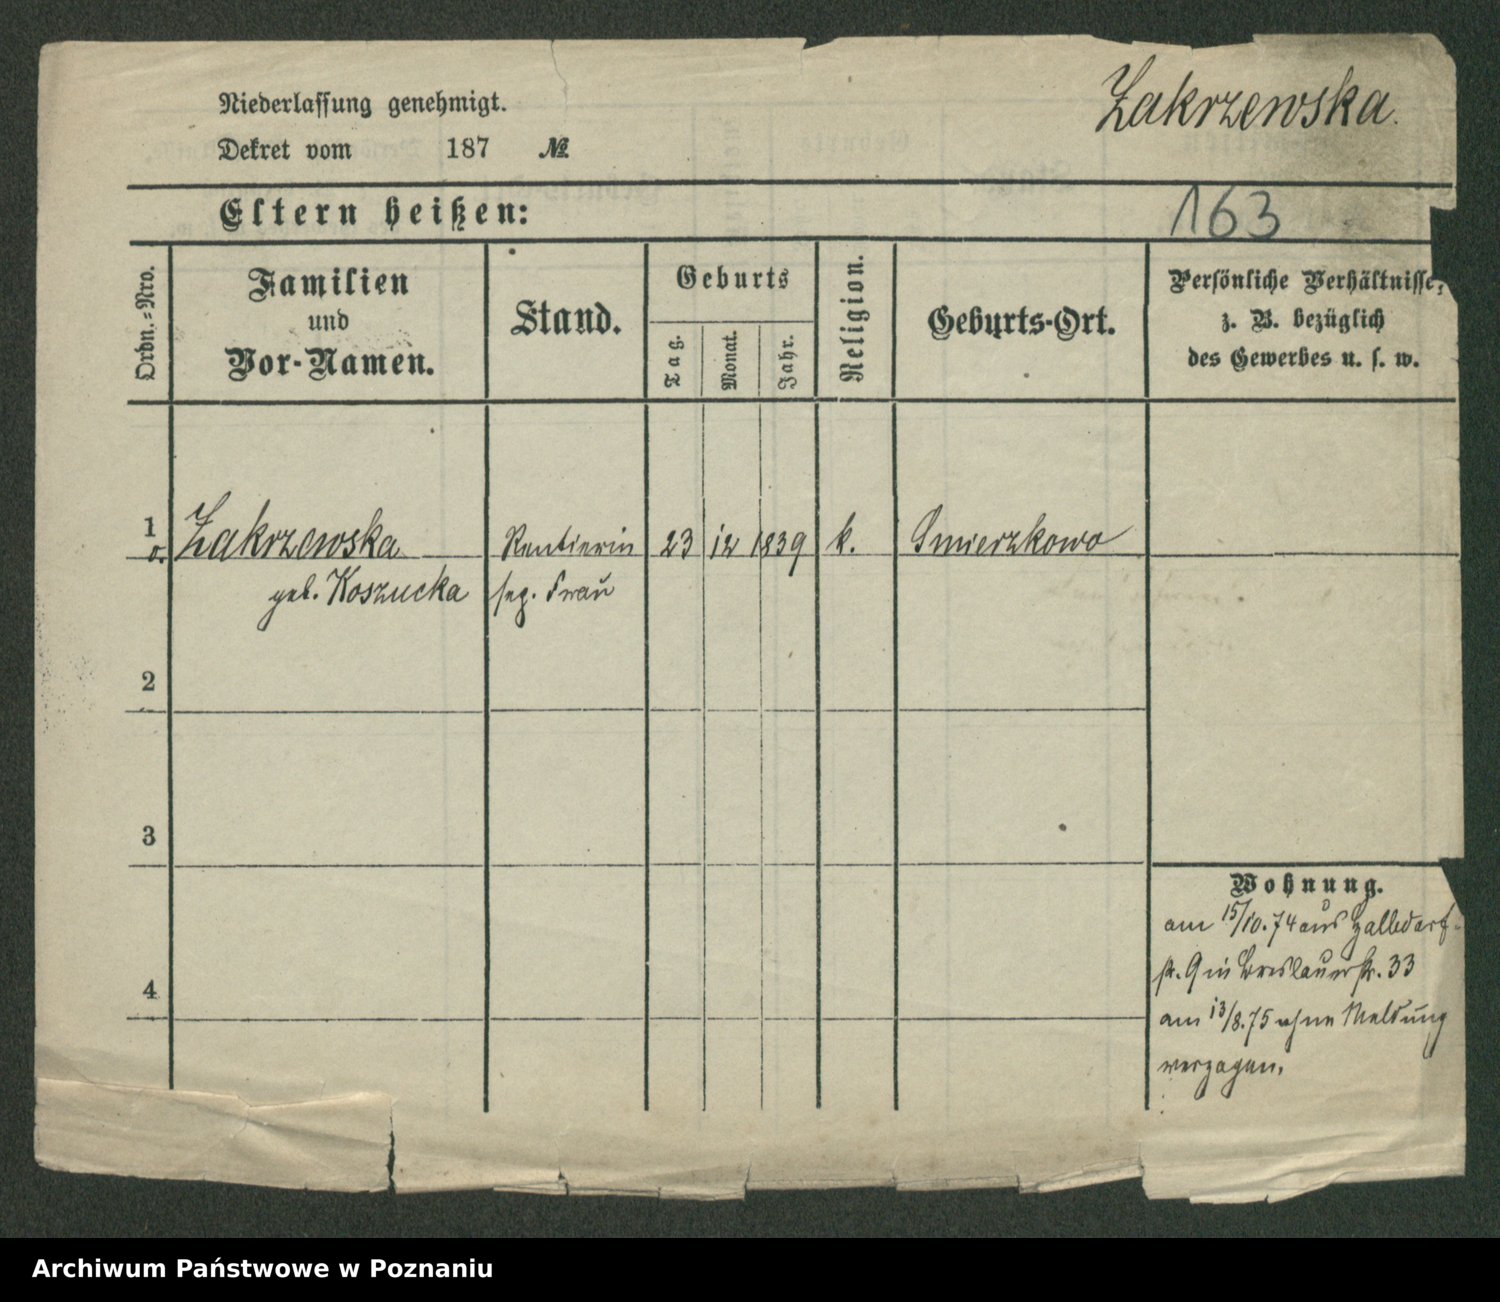 Zakrzewska.
Niederlassung genehmigt.
Dekret vom 187 №
Eltern heißen:
163
Ordn.-Nro.
Familien
und
Vor-Namen.
Stand.
Geburts
Tag.
Monat.
Jahr.
Religion.
Geburts-Ort.
Persönliche Verhältnisse,
z. B. bezüglich
des Gewerbes u. s. w.
1 Zakrzewska Rentierin 23 12 1839 k. Smierzkowo
geb. Koszucka Frau
2
3
4
Wohnung.
am 15/10.74 aus Halbdorf-
str. 9 in Breslauerstr. 33
am 13/8.75 ohne Meldung
verzogen.
Archiwum Państwowe w Poznaniu